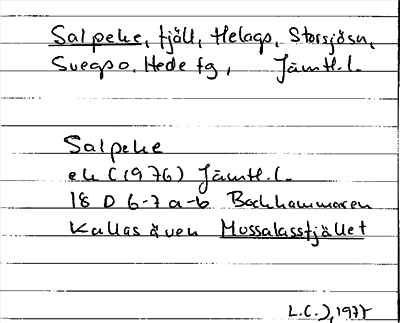 Salpeke, fjäll, Helags, Storsjösn,
Svegs o. Hede fg, Jämtl. l.
Salpeke
ek (1976) Jämtl. l.
18 D 6-7 a-b Bockhammaren
Kallas även Mossalassfjället
L.C.J, 1977